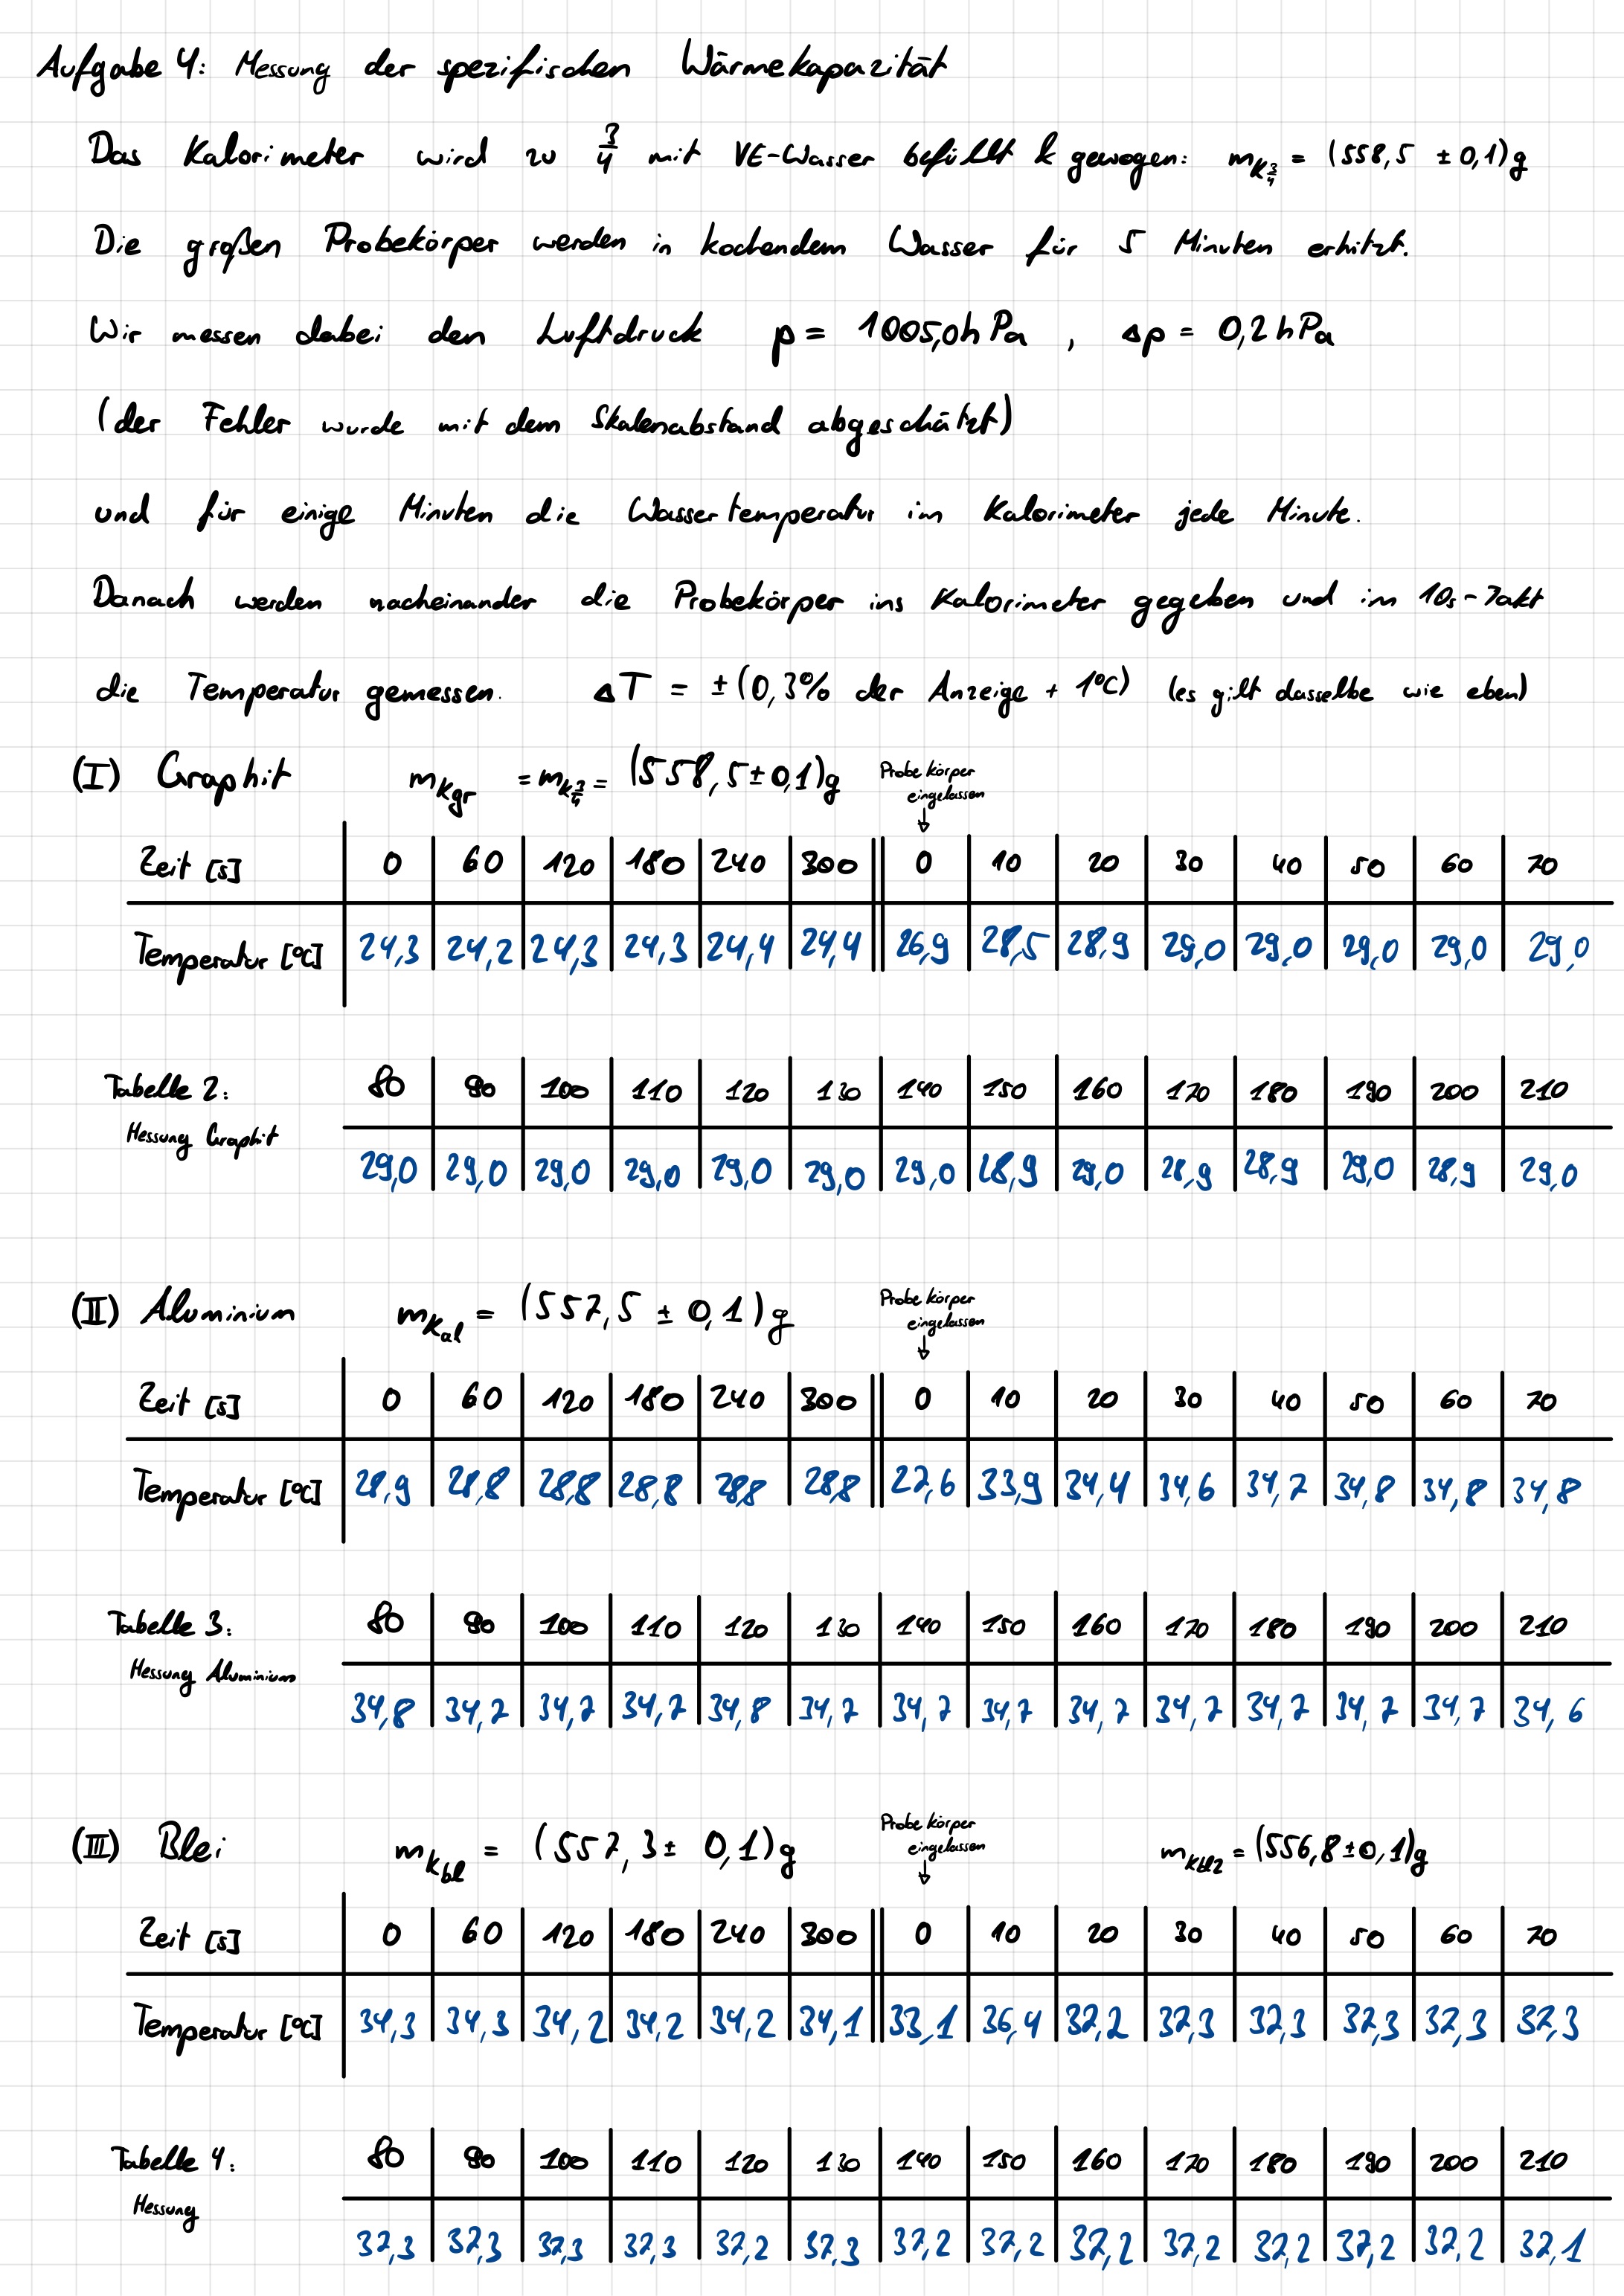 Aufgabe 4: Messung der spezifischen Wärmekapazität
Das Kalorimeter wird zu 3/4 mit VE-Wasser befüllt & gewogen: m_K3/4 = (558,5 ± 0,1)g
Die großen Probekörper werden in kochendem Wasser für 5 Minuten erhitzt.
Wir messen dabei den Luftdruck p = 1005,0hPa , Δp = 0,2hPa
(der Fehler wurde mit dem Skalenabstand abgeschätzt)
und für einige Minuten die Wassertemperatur im Kalorimeter jede Minute.
Danach werden nacheinander die Probekörper ins Kalorimeter gegeben und im 10s-Takt
die Temperatur gemessen. ΔT = ±(0,3% der Anzeige + 1°C) (es gilt dasselbe wie eben)
(I) Graphit m_Kgr = m_K3/4 = (558,5±0,1)g Probekörper eingelassen ↓
Zeit [s] 0 60 120 180 240 300 0 10 20 30 40 50 60 70
Temperatur [°C] 24,3 24,2 24,3 24,3 24,4 24,4 26,9 28,5 28,9 29,0 29,0 29,0 29,0 29,0
Tabelle 2: 80 90 100 110 120 130 140 150 160 170 180 190 200 210
Messung Graphit
29,0 29,0 29,0 29,0 29,0 29,0 29,0 28,9 29,0 28,9 28,9 29,0 28,9 29,0
(II) Aluminium m_Kal = (557,5 ± 0,1)g Probekörper eingelassen ↓
Zeit [s] 0 60 120 180 240 300 0 10 20 30 40 50 60 70
Temperatur [°C] 28,9 28,8 28,8 28,8 28,8 28,8 27,6 33,9 34,4 34,6 34,7 34,8 34,8 34,8
Tabelle 3: 80 90 100 110 120 130 140 150 160 170 180 190 200 210
Messung Aluminium
34,8 34,7 34,7 34,7 34,8 34,7 34,7 34,7 34,7 34,7 34,7 34,7 34,7 34,6
(III) Blei m_Kbl = (557,3± 0,1)g Probekörper eingelassen ↓ m_Kbl2 = (556,8±0,1)g
Zeit [s] 0 60 120 180 240 300 0 10 20 30 40 50 60 70
Temperatur [°C] 34,3 34,3 34,2 34,2 34,2 34,1 33,1 36,4 37,2 37,3 37,3 37,3 37,3 37,3
Tabelle 4: 80 90 100 110 120 130 140 150 160 170 180 190 200 210
Messung
37,3 37,3 37,3 37,3 37,2 37,3 37,2 37,2 37,2 37,2 37,2 37,2 37,2 37,1